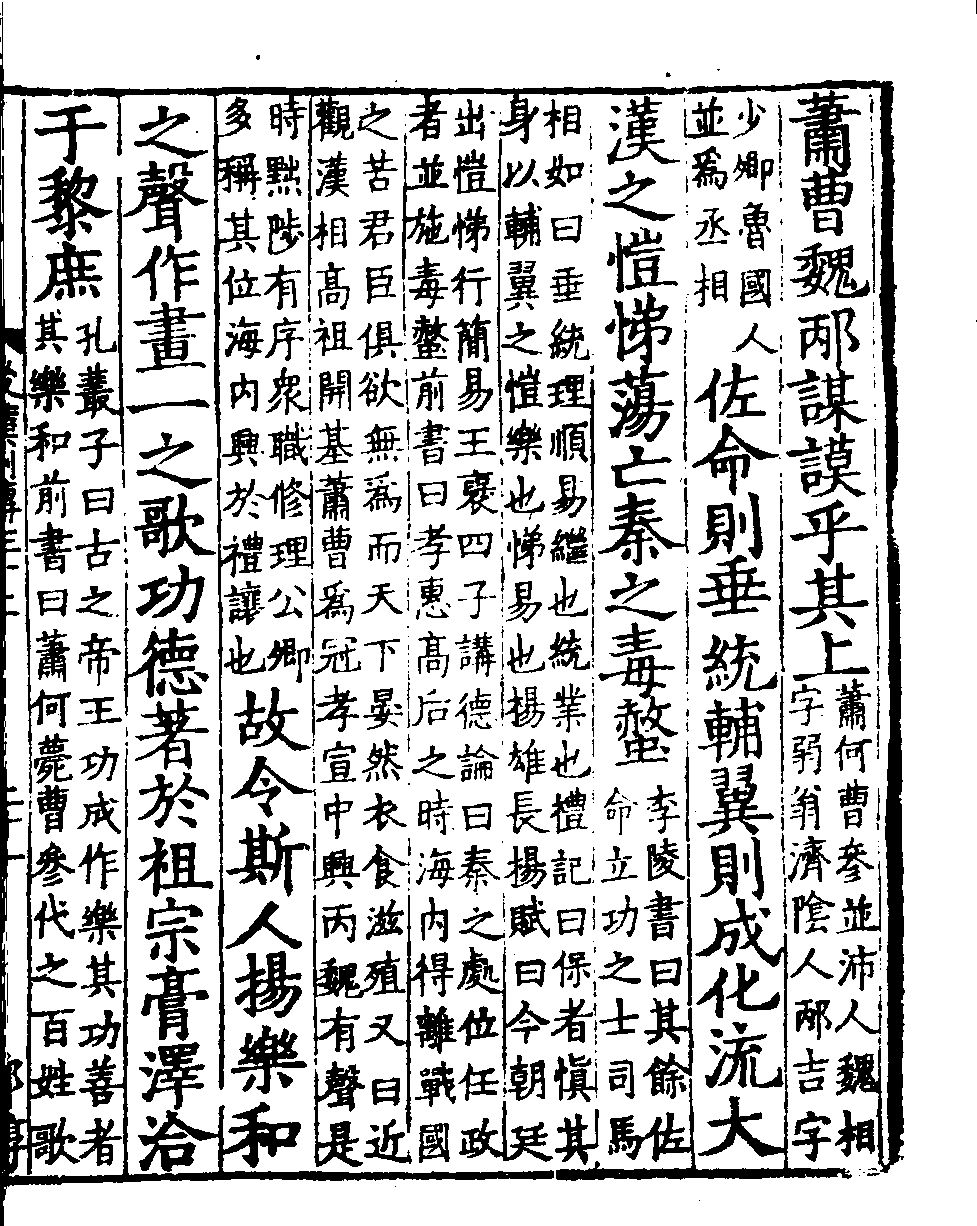 蕭曹魏邴謀謨乎其上蕭何曹參並沛人魏相字弱翁濟陰人邴吉字
少卿魯國人並爲丞相佐命則垂統輔翼則成化流大
漢之愷悌蕩亡秦之毒螫李陵書曰其餘佐命立功之士司馬
相如曰垂統理順易繼也統業也禮記曰保者愼其身以輔翼之愷樂也悌易也揚雄長揚賦曰今朝廷
出愷悌行簡易王襃四子講德論曰秦之處位任政者並施毒螫前書曰孝惠高后之時海内得離戰國
之苦君臣俱欲無爲而天下晏然衣食滋殖又曰近觀漢相高祖開基蕭曹爲冠孝宣中興丙魏有聲是
時黜陟有序衆職修理公卿多稱其位海内興於禮讓也故令斯人揚樂和
之聲作畫一之歌功德著於祖宗膏澤洽
于黎庶孔叢子曰古之帝王功成作樂其功善者其樂和前書曰蕭何薨曹參代之百姓歌